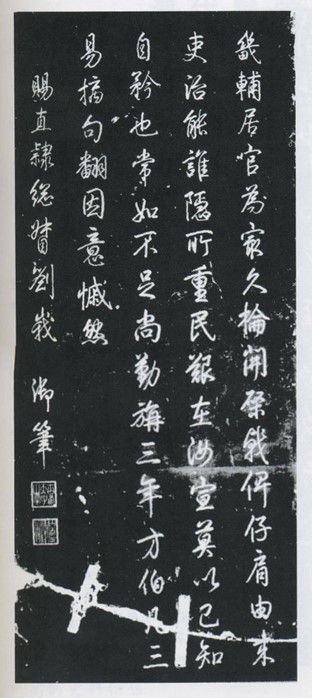 畿輔居官為冣久掄開棨戟俾仔肩由来
吏治能誰隱所重民艱在汝宣莫以已知
自矜也常如不足尚勤旃三年方伯凡三
易摛句翻因意慽然
賜直隸總督劉峩 御筆